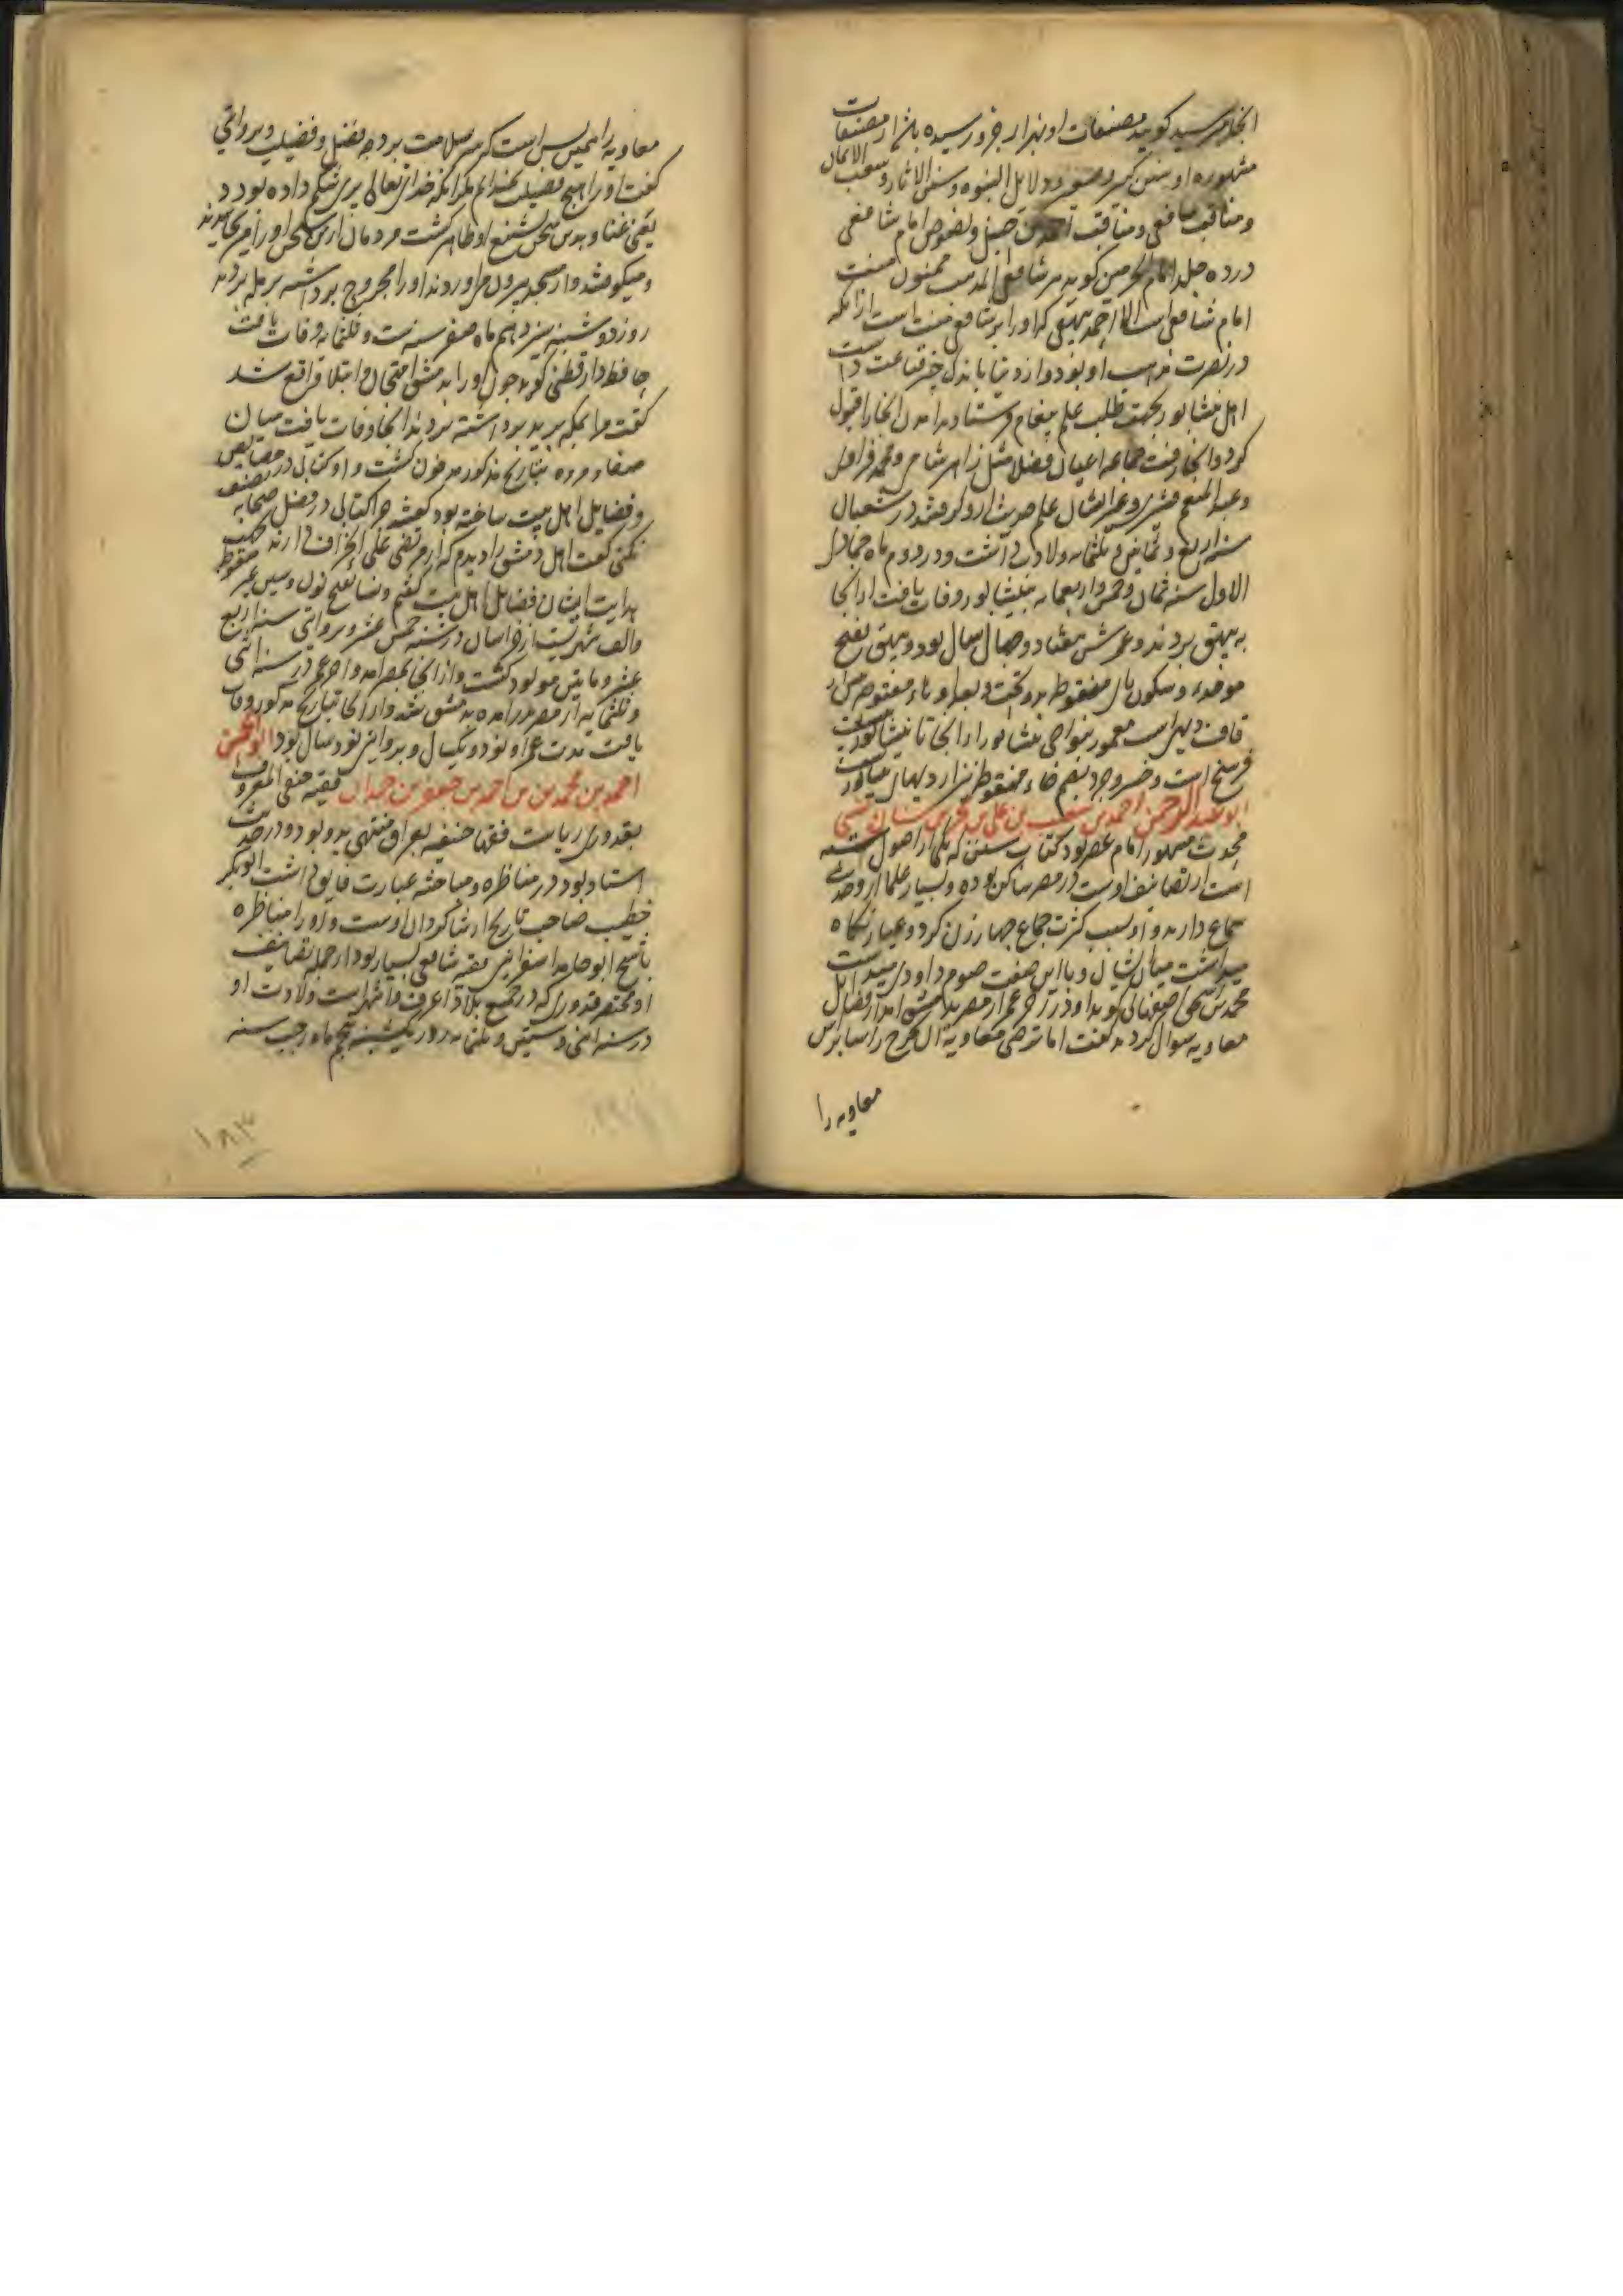 انجا میرسید گویند مصنفات او بهزار جزو رسیده باشد از مصنفات
مشهوره او سنن کبیر و صغیر و دلایل النبوه و سنن الاثار و شعب الایمان
ومناقب شافعی و مناقب احمد بن حنبل و نصوص امام شافعی
در ده جلد امام الحرمین گوید هر شافعی المذهب ممنون منت
امام شافعی است الا احمد بیهقی که او را بر شافعی منت است از انکه
در نصرت مذهب او بود و از دنیا باندک چیز قناعت داشت
اهل نیشابور بجهت طلب علم پیغام فرستادند امدن انجا را قبول
کرد و انجا رفت جماعه اعیان فضلا مثل زاهر شامی و محمد فراوی
وعبد المنعم قشیری و غیر امثال علم حدیث از و گرفتند در شعبان
سنه اربع و ثمانین و ثلثمایه ولادت داشت و در دوم ماه جمادی
الاول سنه ثمان و خمسین و اربعمایه بنیشابور وفات یافت از انجا
به بیهق بردند و عمرش هفتاد و چهار سال بود و بیهق بفتح
موحده و سکون یای منقوطه بدو تحت و بعد او هاء مفتوحه پس از
قاف دیهی است معمور بنواحی نیشابور از انجا تا نیشابور بیست
فرسخ است و خسروجرد بضم خاء منقوطه نیز از دیهای نیشابور
ابو عبد الرحمن احمد بن شعیب بن علی بن بحر بن سنان نسی
محدث مشهور امام عصر بود کتاب سنن که یکی از اصول سته
است از تصانیف اوست در مصر ساکن بوده و بسیار علما از و حدیث
سماع دارند و او بسبب کثرت جماع چهار زن کرد و عیار نگاه
میداشت میان ایشان و با این صفت صوم داودی میداشت
محمد بن اسحق اصفهانی گوید او در اخر عمر از مصر بدمشق امد از فضایل
معاویه سوال کردند گفت اما ترضی معاویة ان یخرج راسا براس
معاویه را
معاویه را همین بس است که سر سلامت برد چه فضل و فضیلت و بروایتی
گفت او را هیچ فضیلت نمیدانم مگر انکه خدای تعالی پری شکم داده بود و
یعنی غنا و بدین سخن تشنیع او ظاهر گشت مردمان از این سخن او را میرنجانیدند
ومیکوفتند و از مسجد بیرون می اوردند او را مجروح برداشته برمله بردند
روز دوشنبه سیزدهم ماه صفر سنه ثلث و ثلثمایه وفات یافت
حافظ دارقطنی گوید چون او را بدمشق امتحان و ابتلا واقع شد
گفت مرا بمکه برید برداشته بردند انجا وفات یافت میان
صفا و مروه بتاریخ مذکور مدفون گشت و او کتابی در خصایص
وفضایل اهل بیت ساخته بود گفتند چرا کتابی در فضل صحابه تصنیف
نکنی گفت اهل دمشق را دیدم که از مرتضی علی انحراف دارند بجهت
هدایت ایشان فضایل اهل بیت گفتم و نسا بفتح نون و سین غیر منقوطه
والف شهریست از خراسان در سنه خمس عشر و بروایتی سنه اربع
عشر و مایتین مولود گشت و از انجا بمصر امد و اخر عمر در سنه اثنی
وثلثمایه از مصر برامده بدمشق شد و از انجا بتاریخ مذکور وفات
یافت مدت عمر او نود و یکسال و بروایتی نود سال بود ابو الحسن
احمد بن محمد بن بن احمد بن جعفر بن حمدان فقیه حنفی المعروف
بقدوری ریاست فقها حنفیه بعراق منتهی بدو بود و در حدیث
استاد بود در مناظره و مباحثه عبارت فایق داشت ابو بکر
خطیب صاحب تاریخ از شاگردان اوست و او را مناظره
با شیخ ابو حامد اسفراینی فقیه شافعی بسیار بود از جمله تصانیف
او مختصر قدوری که در جمیع بلاد اعرف و اشهر است ولادت او
در سنه اثنی و ستین و ثلثمایه روز یکشنبه پنجم ماه رجب سنه
۱۸۳